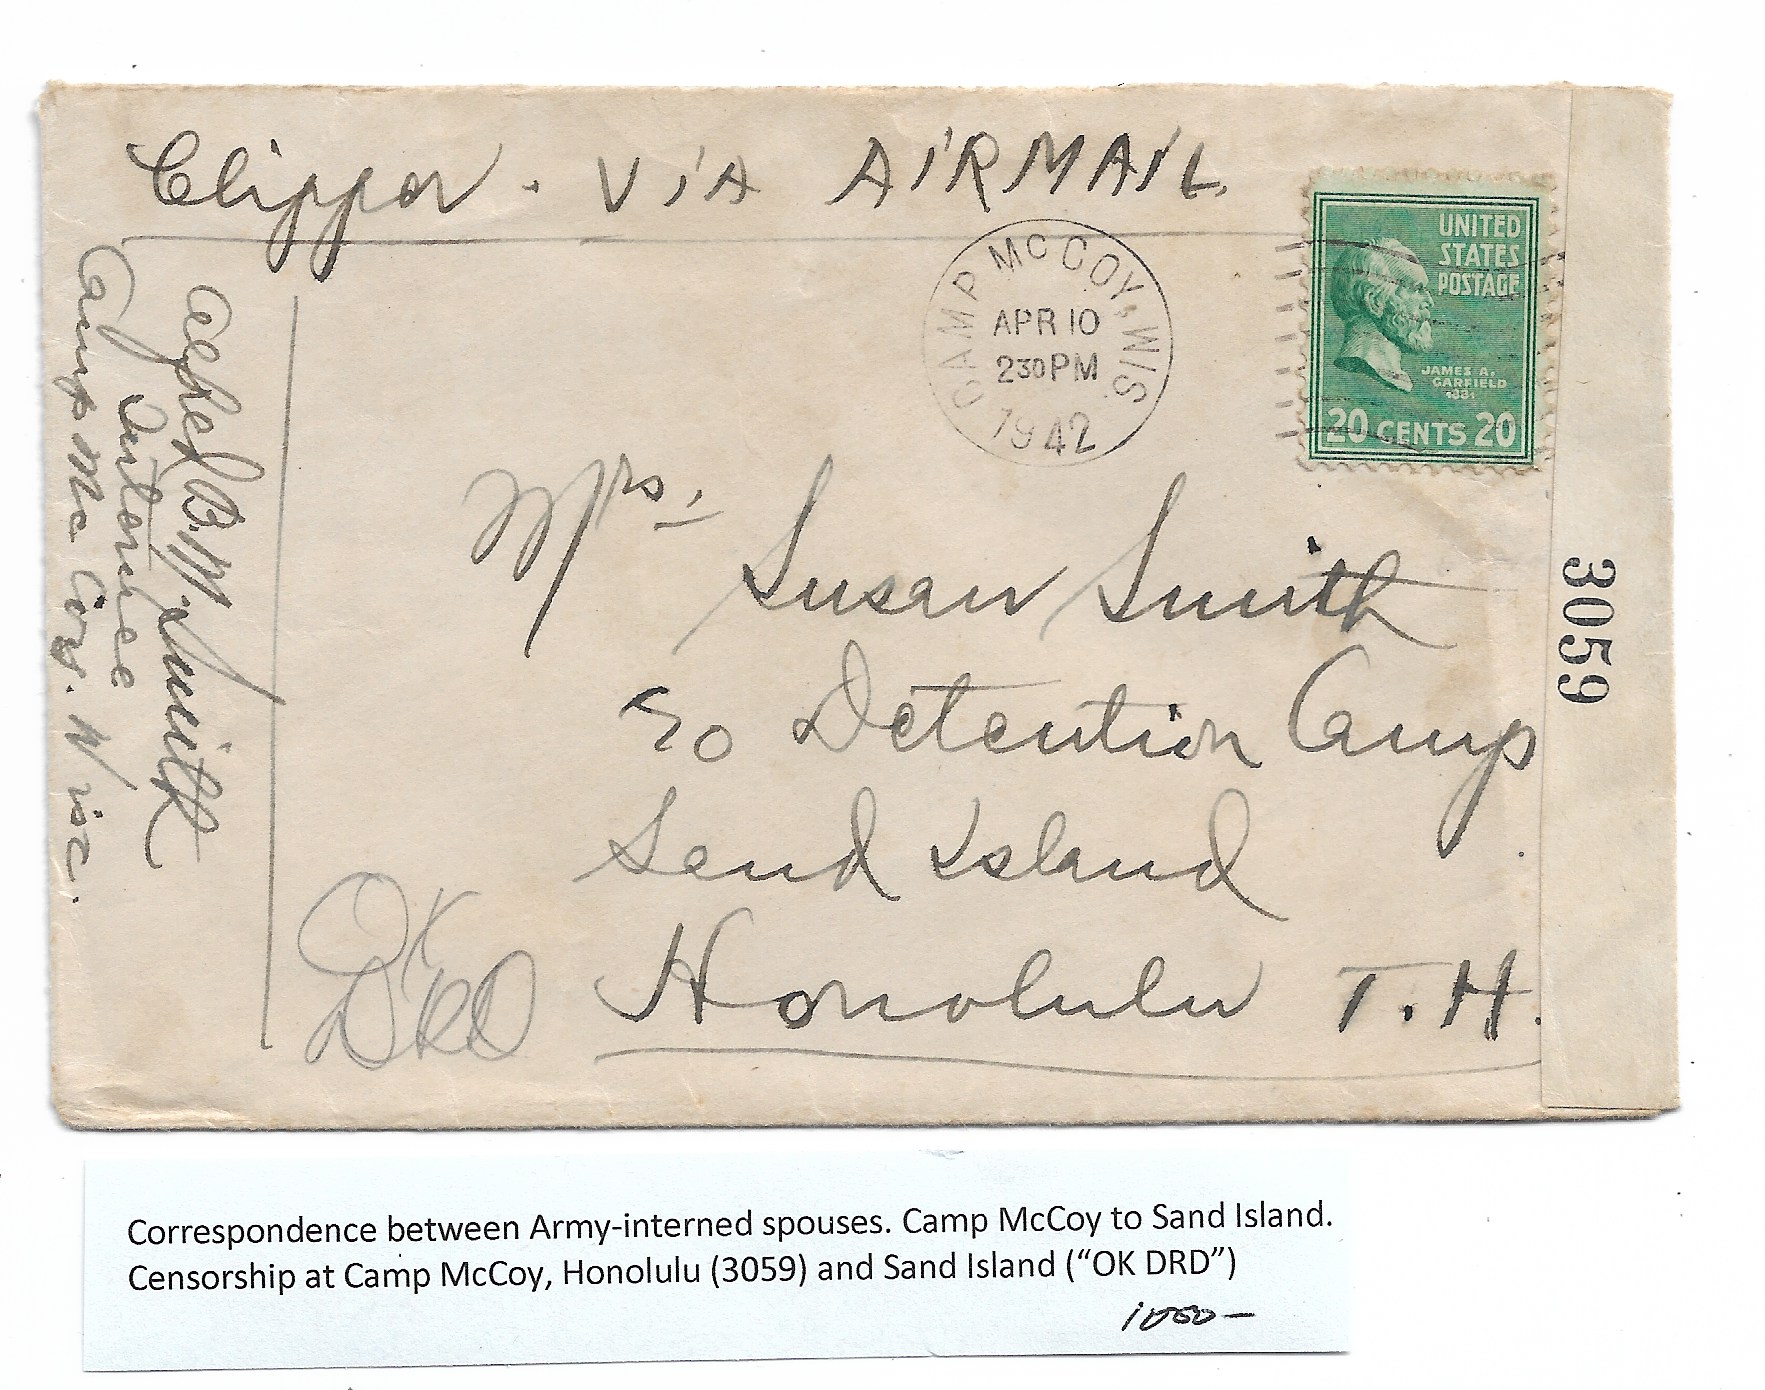 Clipper. VIA AIRMAIL.
CAMP McCOY, WIS.
APR 10
230PM
1942
UNITED
STATES
POSTAGE
JAMES A.
GARFIELD
1881
20 CENTS 20
B. M. Smith
Internee
Camp Mc Coy. Wisc.
Mrs. Susan Smith
c/o Detention Camp
Sand Island
Honolulu T.H.
OK
DRD
3059
Correspondence between Army-interned spouses. Camp McCoy to Sand Island.
Censorship at Camp McCoy, Honolulu (3059) and Sand Island (“OK DRD”)
1000-